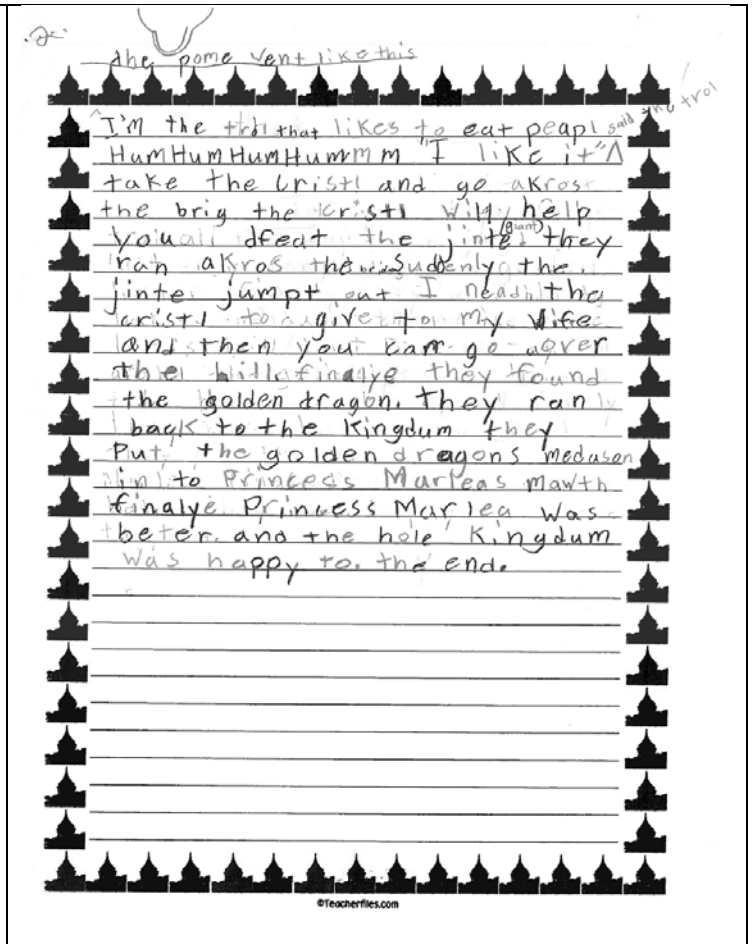 the pome vent like this
I'm the trol that likes to eat peapl said the trol
HumHumHumHummm "I like it" Λ
take the cristl and go akros
the brig the cristl will help
you all dfeat the jinte (giant) they
ran akros the Suddenly the
jinte jumpt out I nead the
cristl to give to my Wife
and then you can go over
the hill finalye they found
the golden dragon. They ran
back to the Kingdum they
Put the golden dragons medusen
in to Princess Marleas mawth
finalye Princess Marlea was
beter. and the hole Kingdum
was happy to. the end.
©Teacherfiles.com